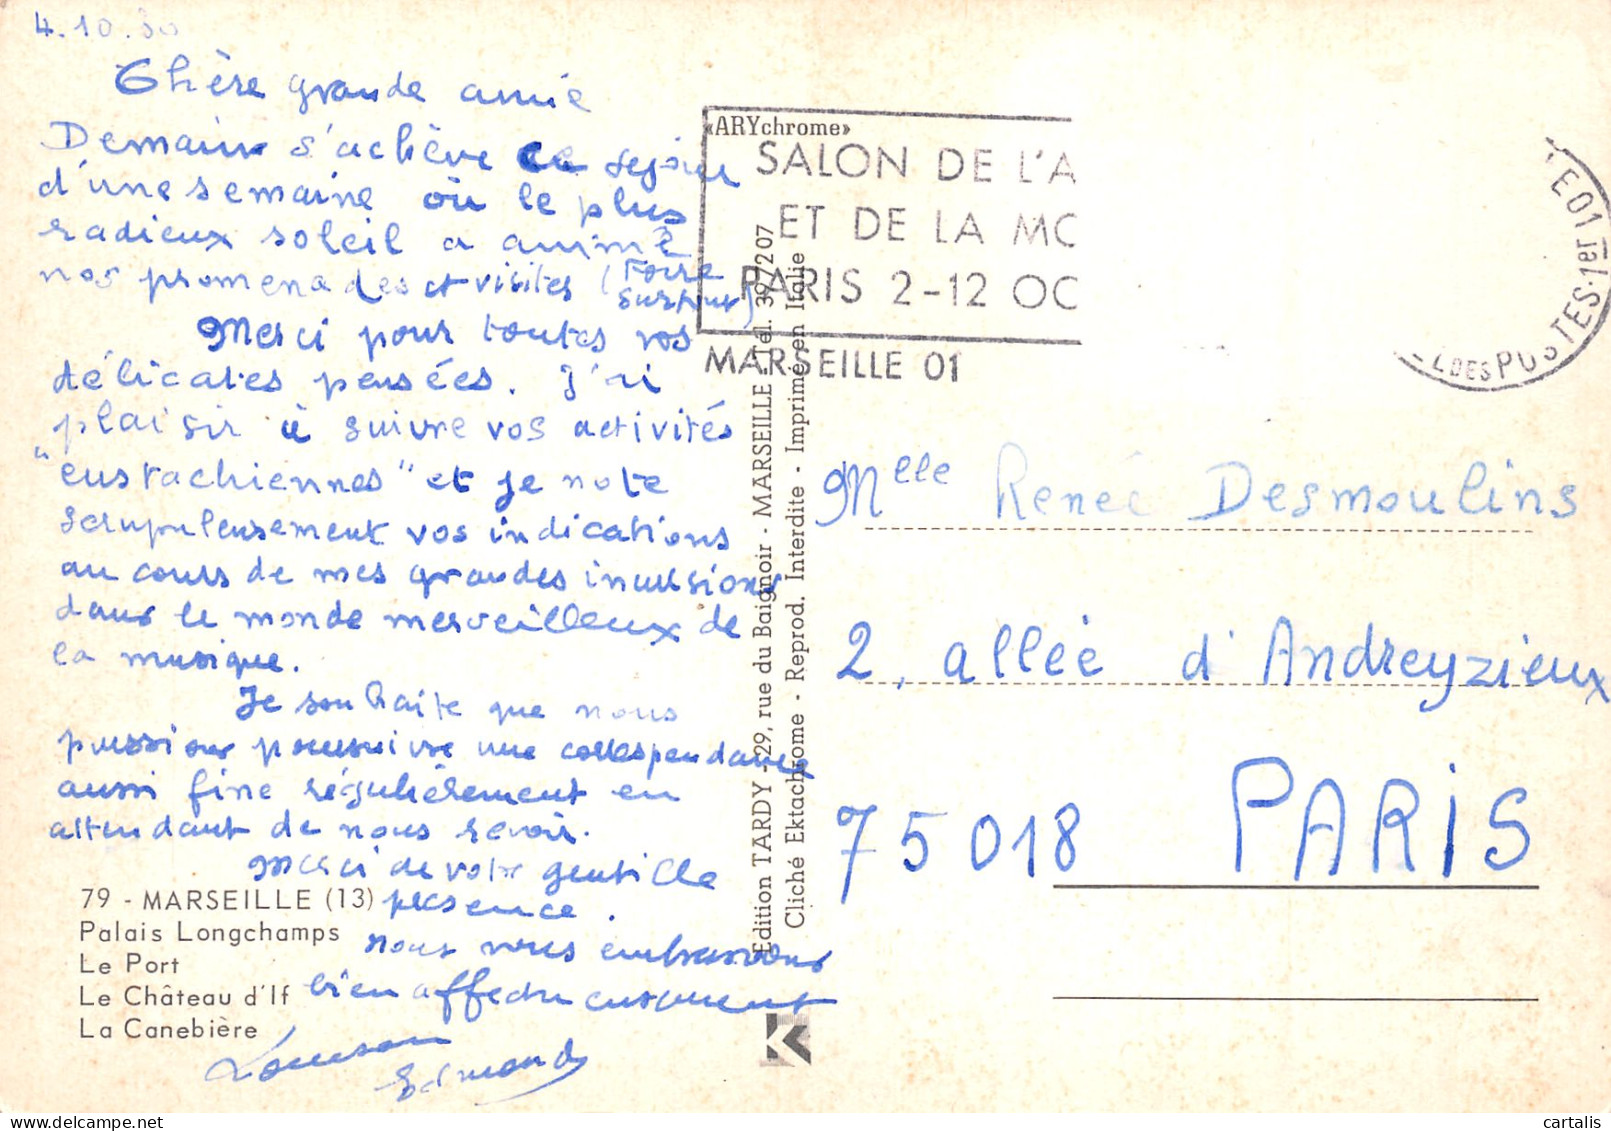 4.10.80
Chère grande amie
Demain s'achève ce sejour
d'une semaine où le plus
radieux soleil a animé
nos promenades et visites (Foire
surtout)
Merci pour toutes vos
délicates pensées. J'ai
plaisir à suivre vos activités
"eustachiennes" et je note
scrupuleusement vos indications
au cours de mes grandes incursions
dans le monde merveilleux de
la musique.
Je souhaite que nous
puissions poursuivre une correspondance
aussi fine régulièrement en
attendant de nous revoir.
Merci de votre gentille
présence.
Nous vous embrassons
bien affectueusement
Edmond
79 - MARSEILLE (13)
Palais Longchamps
Le Port
Le Château d'If
La Canebière
«ARYchrome»
SALON DE L'A
ET DE LA MO
PARIS 2-12 OC
MARSEILLE 01
E01
DES POSTES·1er
Edition TARDY - 29, rue du Baignoir - MARSEILLE - Tél. 397207
Cliché Ektachrome - Reprod. Interdite - Imprimé en Italie
Mlle Renée Desmoulins
2, allée d'Andreyzieux
75018 PARIS
K
cartalis